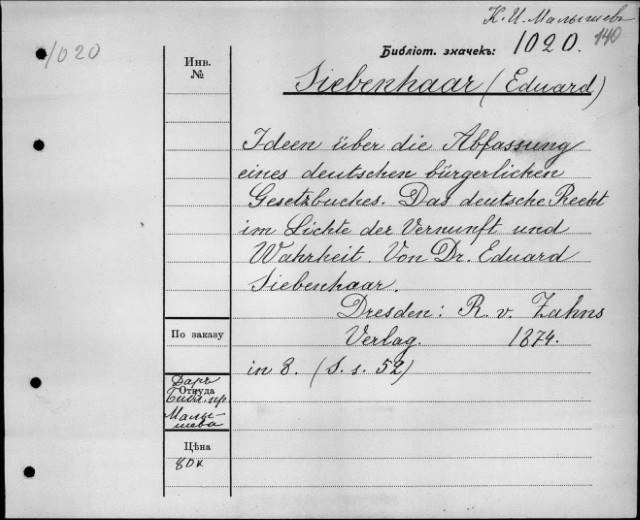 К. И. Малышевъ
140
1020
Библіот. значекъ: 1020.
Инв.
№
Siebenhaar (Eduard)
Ideen über die Abfassung
eines deutschen bürgerlichen
Gesetzbuches. Das deutsche Reebt
im Lichte der Vernunft und
Wahrheit. Von Dr. Eduard
Siebenhaar.
Dresden: R. v. Zahns
Verlag. 1874.
in 8. (S. s. 52)
По заказу
Даръ
Откуда
Библ. пр
Малы-
шева
Цѣна
80 к